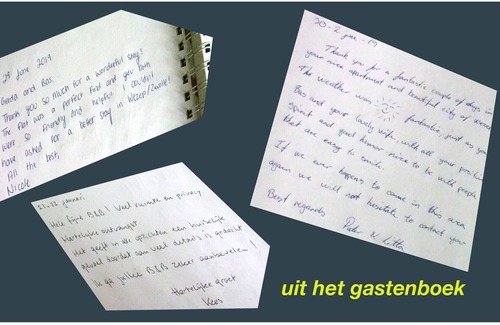 29 June 2019
Gerda and Bas,
Thank you so much for a wonderful stay!
The flat was a perfect find and you both
were so friendly and helpful. I couldn't
have asked for a better stay in Wezep/Zwolle!
All the best,
Nicole
Thank you for a fantastic couple of days in
your nice apartment and beautiful city of
The weather was fantastic, just as you
Bas and your lovely wife, with all your positive
spirit and good humor nice to be with people
that are easy to smile.
If we ever happens to come in this area
again we will not hesitate to contact you.
Best regards
21-22 januari
Hele fijne B&B! Veel ruimte en privacy.
Hartelijke ontvangst.
Het geeft in alle opzichten een huiselijk
gevoel doordat aan veel details is gedacht
Ik ga jullie B&B zeker aanbevelen!
Hartelijke groet
Kees
uit het gastenboek